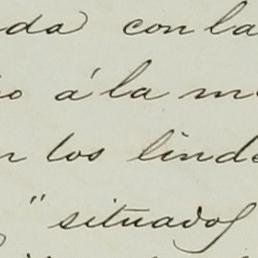 da con la
o á la m
n los linde
" situados